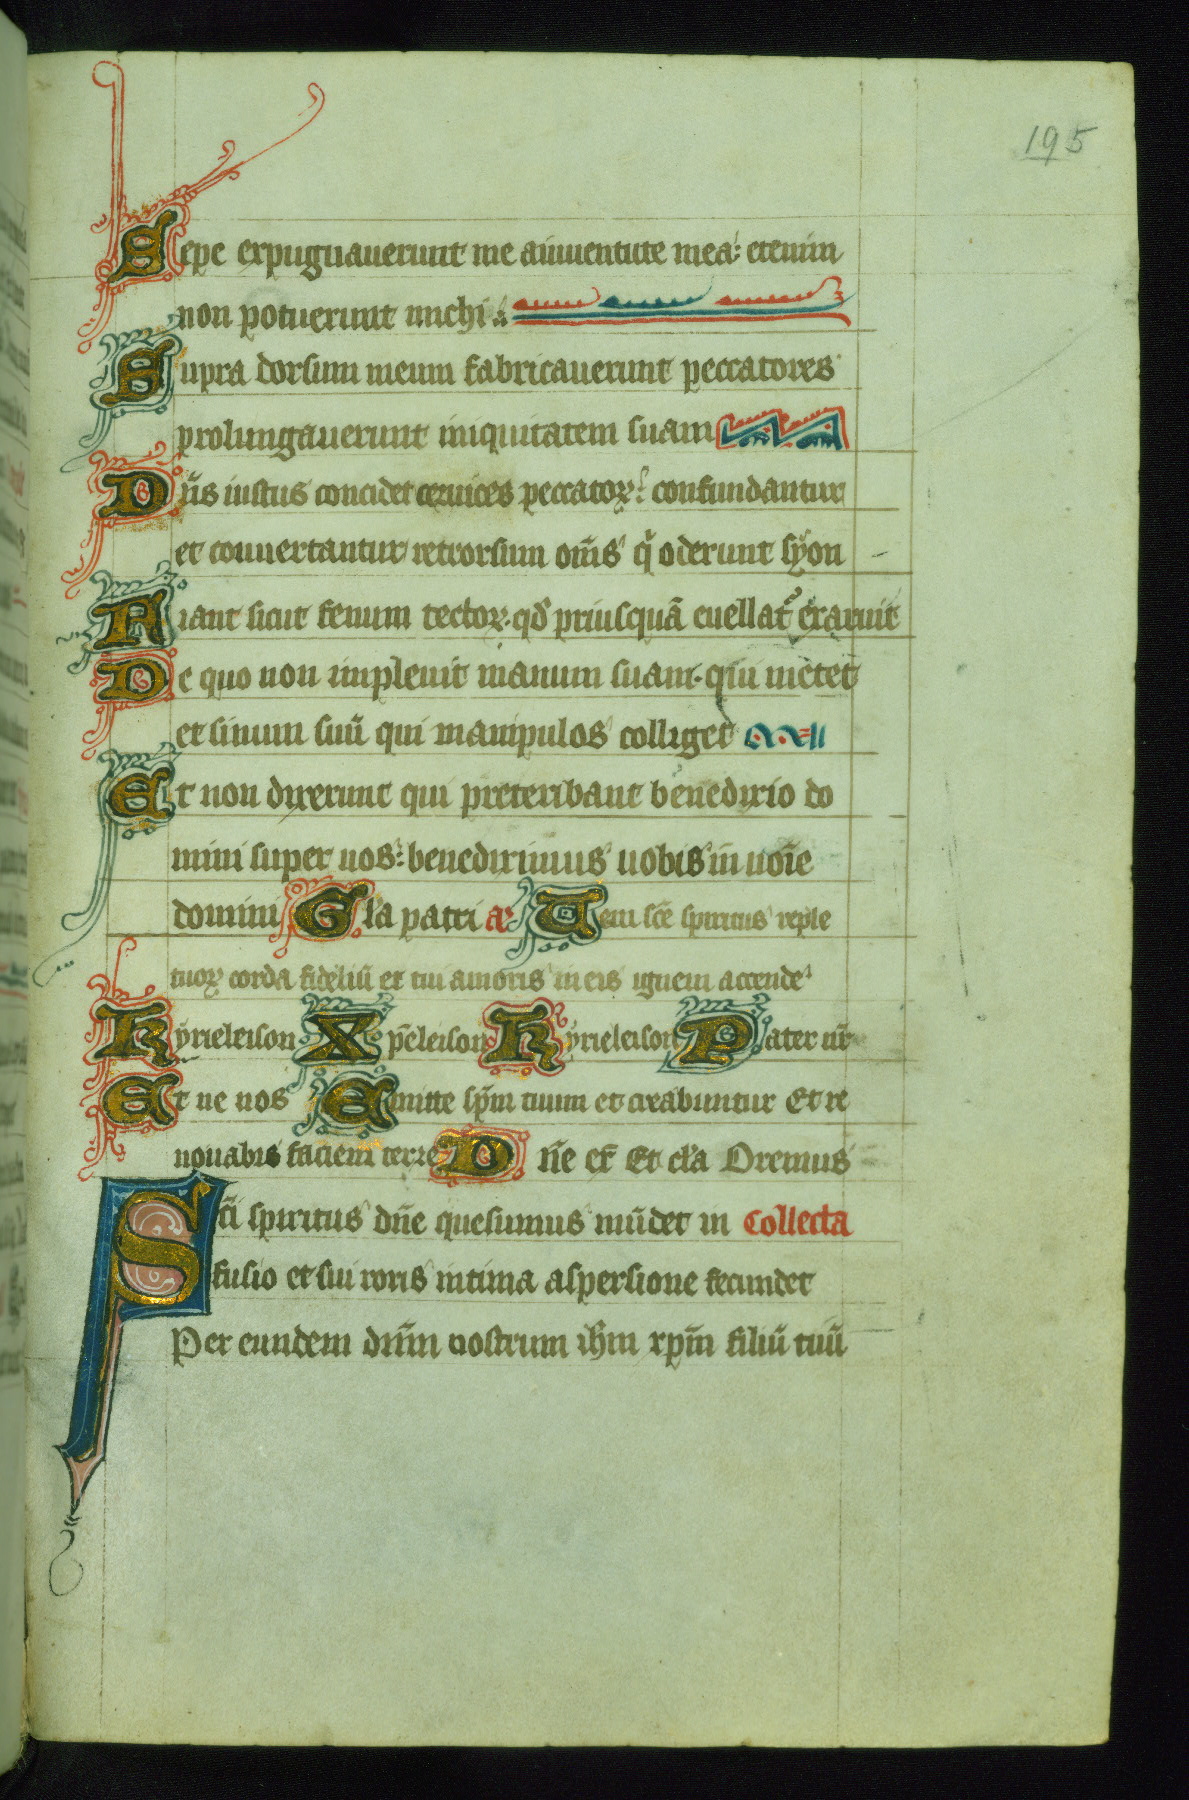 195
Sepe expugnauerunt me a iuuentute mea: etenim
non potuerunt michi
Supra dorsum meum fabricauerunt peccatores
prolungauerunt iniquitatem suam
Dñs iustus concidet ceruices peccatoꝝ: confundantur
et conuertantur retrorsum om̄s q̄ oderunt syon
Fiant sicut fenum tectoꝝ. qd̄ priusquā euellat᷑ exaruit
De quo non impleuit manum suam. qui metet
et sinum suū qui manipulos colliget
Et non dixerunt qui preteribant benedixio do
mini super uos: benediximus uobis in noīe
domini Gl̄a patri Ueni sc̄e spiritus reple
tuoꝝ corda fideliū et tui amoris in eis ignem accende
Kyrieleison Xp̄eleison Kyrieleison Pater nr̄
Et ne nos Emitte sp̄m tuum et creabuntur Et re
nouabis faciem terre Dn̄e ex̄ Et cl̄a Oremus
Sc̄i spiritus dn̄e quesumus mūdet in Collecta
fusio et sui roris intima aspersione fecundet
Per eundem dn̄m nostrum ih̄m xp̄m filiū tuū